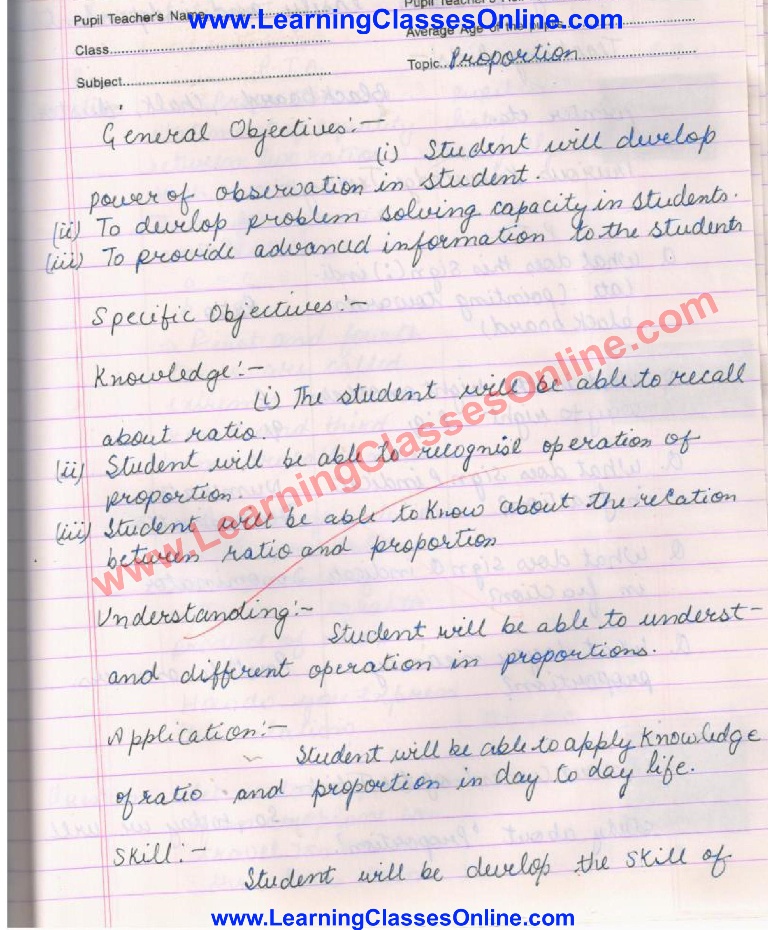 www.LearningClassesOnline.com
Pupil Teacher's Name
Class
Average Age of the pupils
Subject
Topic.. Proportion
General Objectives:-
(i) Student will develop
power of observation in student.
(ii) To develop problem solving capacity in students.
(iii) To provide advanced information to the students
Specific Objectives:-
Knowledge:-
(i) The student will be able to recall
about ratio.
(ii) Student will be able to recognise operation of
proportion.
(iii) Student will be able to know about the relation
between ratio and proportion
Understanding:-
Student will be able to underst-
and different operation in proportions.
Application:-
Student will be able to apply knowledge
of ratio and proportion in day to day life.
Skill:-
Student will be develop the skill of
www.LearningClassesOnline.com
www.LearningClassesOnline.com